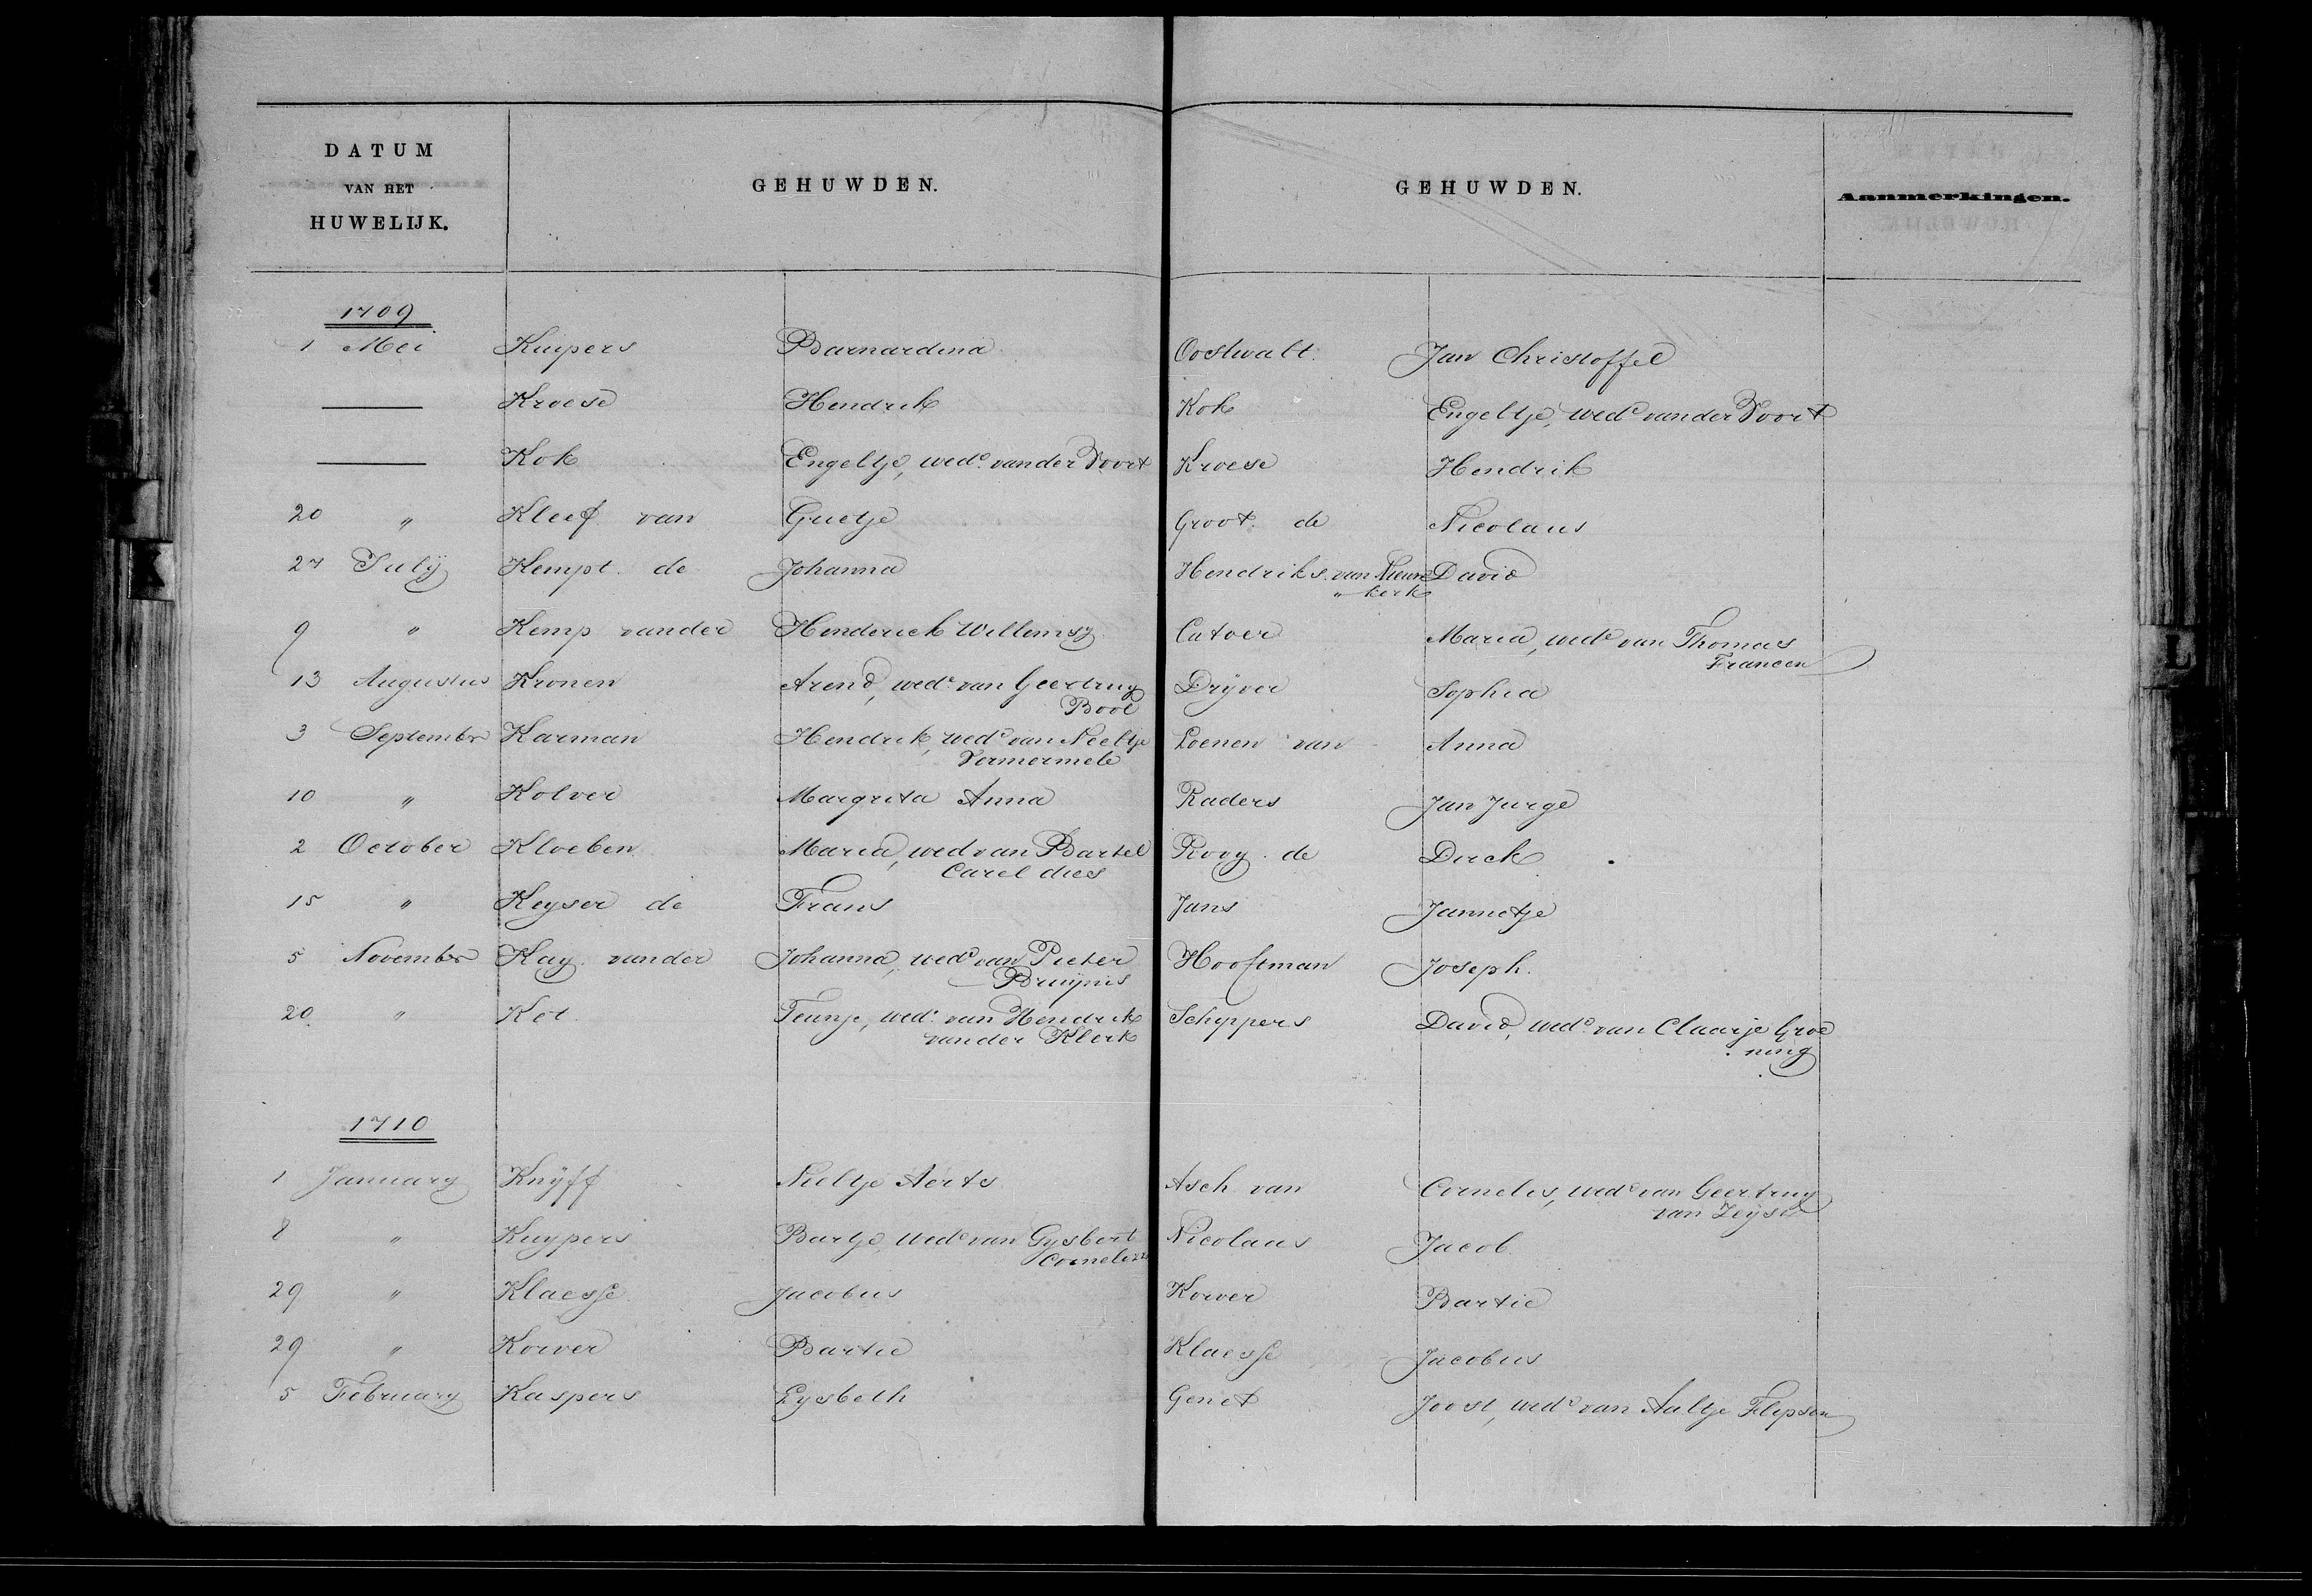 DATUM VAN HET HUWELIJK. GEHUWDEN. GEHUWDEN. Aanmerkingen.
1709
1 Mei Kuipers Barnardina Oostwalt. Jan Christoffel
—— Kroese Hendrik Kok Engeltje, wede vander Voort
—— Kok Engeltje, wede. vander Voort Kroese Hendrik
20 " Kleef van Grietje Groot. de Nicolaus
27 July Kempt. de Johanna Hendriks. van Nieuw David
" kerk
9 " Kemp vander Henderick Willemsz Catoer Maria, wede van Thomas
Francen
13 Augustus Kronen Arend, wede. van Geertruy Drÿver Sophia
Bool
3 Septembr Karman Hendrik, wede van Neeltje Loenen van Anna
Vermermele
10 " Kolver Margrita Anna Raders Jan Jurge
2 October Kloeben Maria, wed van Bartel Rooy. de Dirck
Carel dies
15 " Keyser de Frans Jans Jannetje
5 Novembr Kay. vander Johanna, wede van Pieter Hooftman Joseph.
Bruÿnis
20. " Ket Teunje, wede. van Hendrik Schippers David, wede. van Claarje Groe
vander Klerk
ning
1710
1 January Knÿff Neeltje Aerts Asch van Cornelis, wede van Geertruy
van Zeÿst
8 " Kuypers Bartje, wede van Gysbert Nicolaus Jacob.
Cornelisz
29 " Klaesse Jacobus Korver Bartie
29 " Korver Bartie Klaesse Jacobus
5 February Kaspers Lysbeth Genet Joost, wede van Aaltje Flipsen
K
L